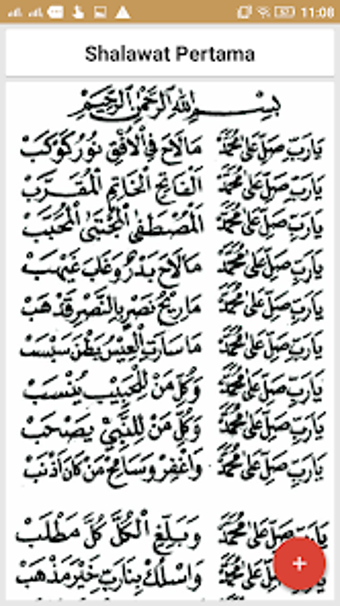 11:08
Shalawat Pertama
بِسْمِ اللهِ الرَّحْمٰنِ الرَّحِيْمِ
يَارَبِّ صَلِّ عَلىٰ مُحَمَّدْ مَالَاحَ فِي الْاُفْقِ نُوْرُ كَوْكَبْ
يَارَبِّ صَلِّ عَلىٰ مُحَمَّدْ اَلْفَاتِحِ الْخَاتِمِ الْمُقَرَّبْ
يَارَبِّ صَلِّ عَلىٰ مُحَمَّدْ اَلْمُصْطَفٰى الْمُجْتَبٰى الْمُحَبَّبْ
يَارَبِّ صَلِّ عَلىٰ مُحَمَّدْ مَالَاحَ بَدْرٌ وَغَابَ غَيْهَبْ
يَارَبِّ صَلِّ عَلىٰ مُحَمَّدْ مَارِيْحُ نَصْرٍ بِالنَّصْرِ قَدْ هَبْ
يَارَبِّ صَلِّ عَلىٰ مُحَمَّدْ مَاسَارَتِ الْعِيْسُ بَطْنَ سَبْسَبْ
يَارَبِّ صَلِّ عَلىٰ مُحَمَّدْ وَكُلِّ مَنْ لِلْحَبِيْبِ يُنْسَبْ
يَارَبِّ صَلِّ عَلىٰ مُحَمَّدْ وَكُلِّ مَنْ لِلنَّبِيِّ يَصْحَبْ
يَارَبِّ صَلِّ عَلىٰ مُحَمَّدْ وَاغْفِرْ وَسَامِحْ مَنْ كَانَ اَذْنَبْ
يَارَبِّ صَلِّ عَلىٰ مُحَمَّدْ وَبَلِّغِ الْكُلَّ كُلَّ مَطْلَبْ
يَارَبِّ صَلِّ عَلىٰ مُحَمَّدْ وَاسْلُكْ بِنَارَبِّ خَيْرَ مَذْهَبْ